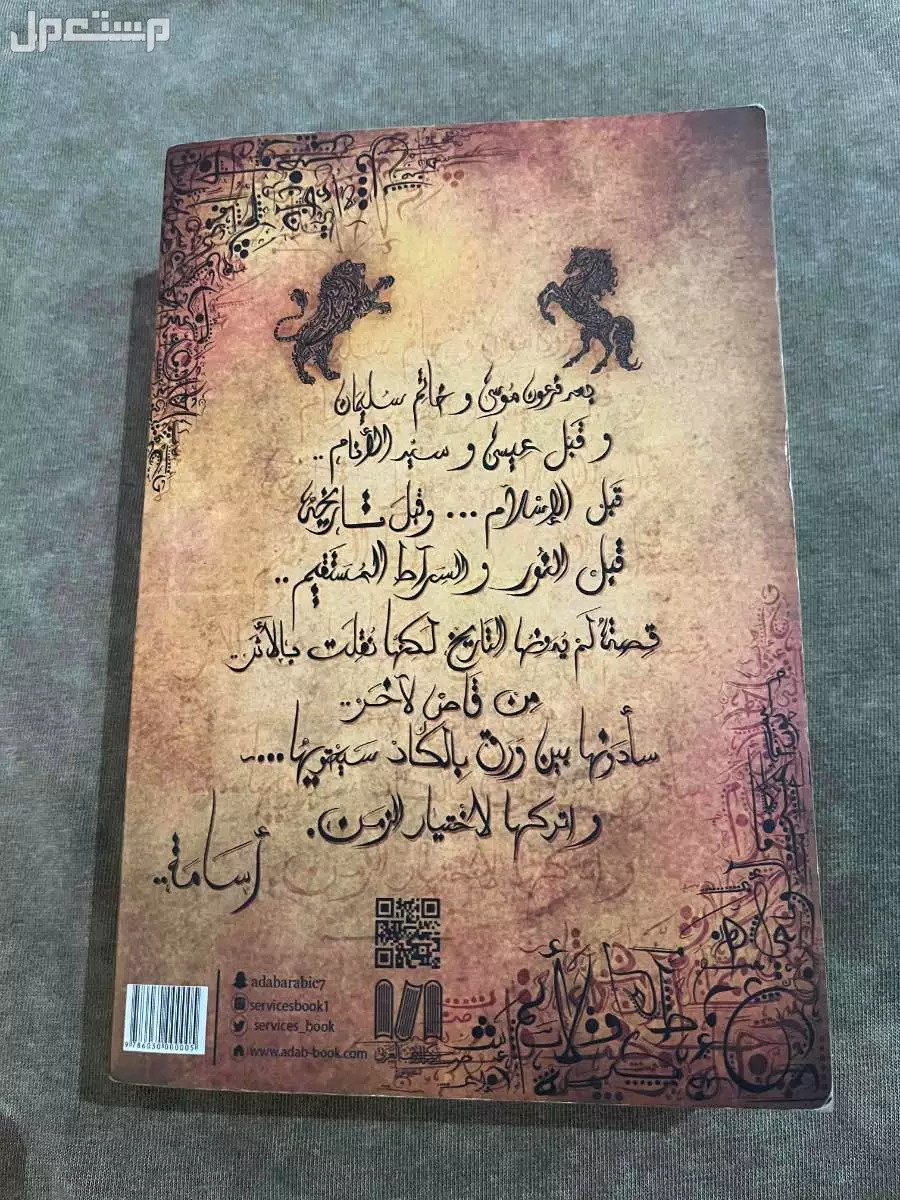 مستعمل
بعد فرعون موسى و خاتم سليمان
و قبل عيسى و سيد الأنام ..
قبل الإسلام ... وقبل تاريخه
قبل النور و السراط المستقيم ..
قصةٌ لم يدونها التاريخ لكنها نُقلت بالأثر ..
من قاصٍ لآخر ..
سأدونها بين ورق بالكاد سيحتويها ....
و اتركها لاختيار الزمن .
أسامة ..
adabarabic7
servicesbook1
services_book
www.adab-book.com
9 786030 000005